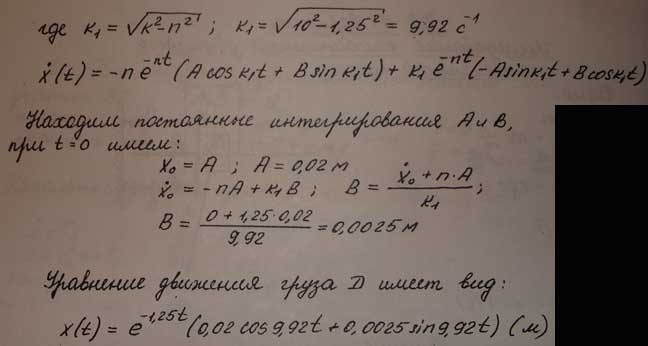 где к₁ = √(к²-n²) ; к₁ = √(10²-1,25²) = 9,92 с⁻¹
ẋ(t) = -n e⁻ⁿᵗ (A cos к₁t + B sin к₁t) + к₁ e⁻ⁿᵗ (-A sin к₁t + B cos к₁t)
Находим постоянные интегрирования A и B,
при t=0 имеем:
x₀ = A ; A = 0,02 м
ẋ₀ = -nA + к₁B ; B = (ẋ₀ + n·A)/к₁ ;
B = (0 + 1,25·0,02)/9,92 = 0,0025 м
Уравнение движения груза D имеет вид:
x(t) = e^(-1,25t) (0,02 cos 9,92t + 0,0025 sin 9,92t) (м)